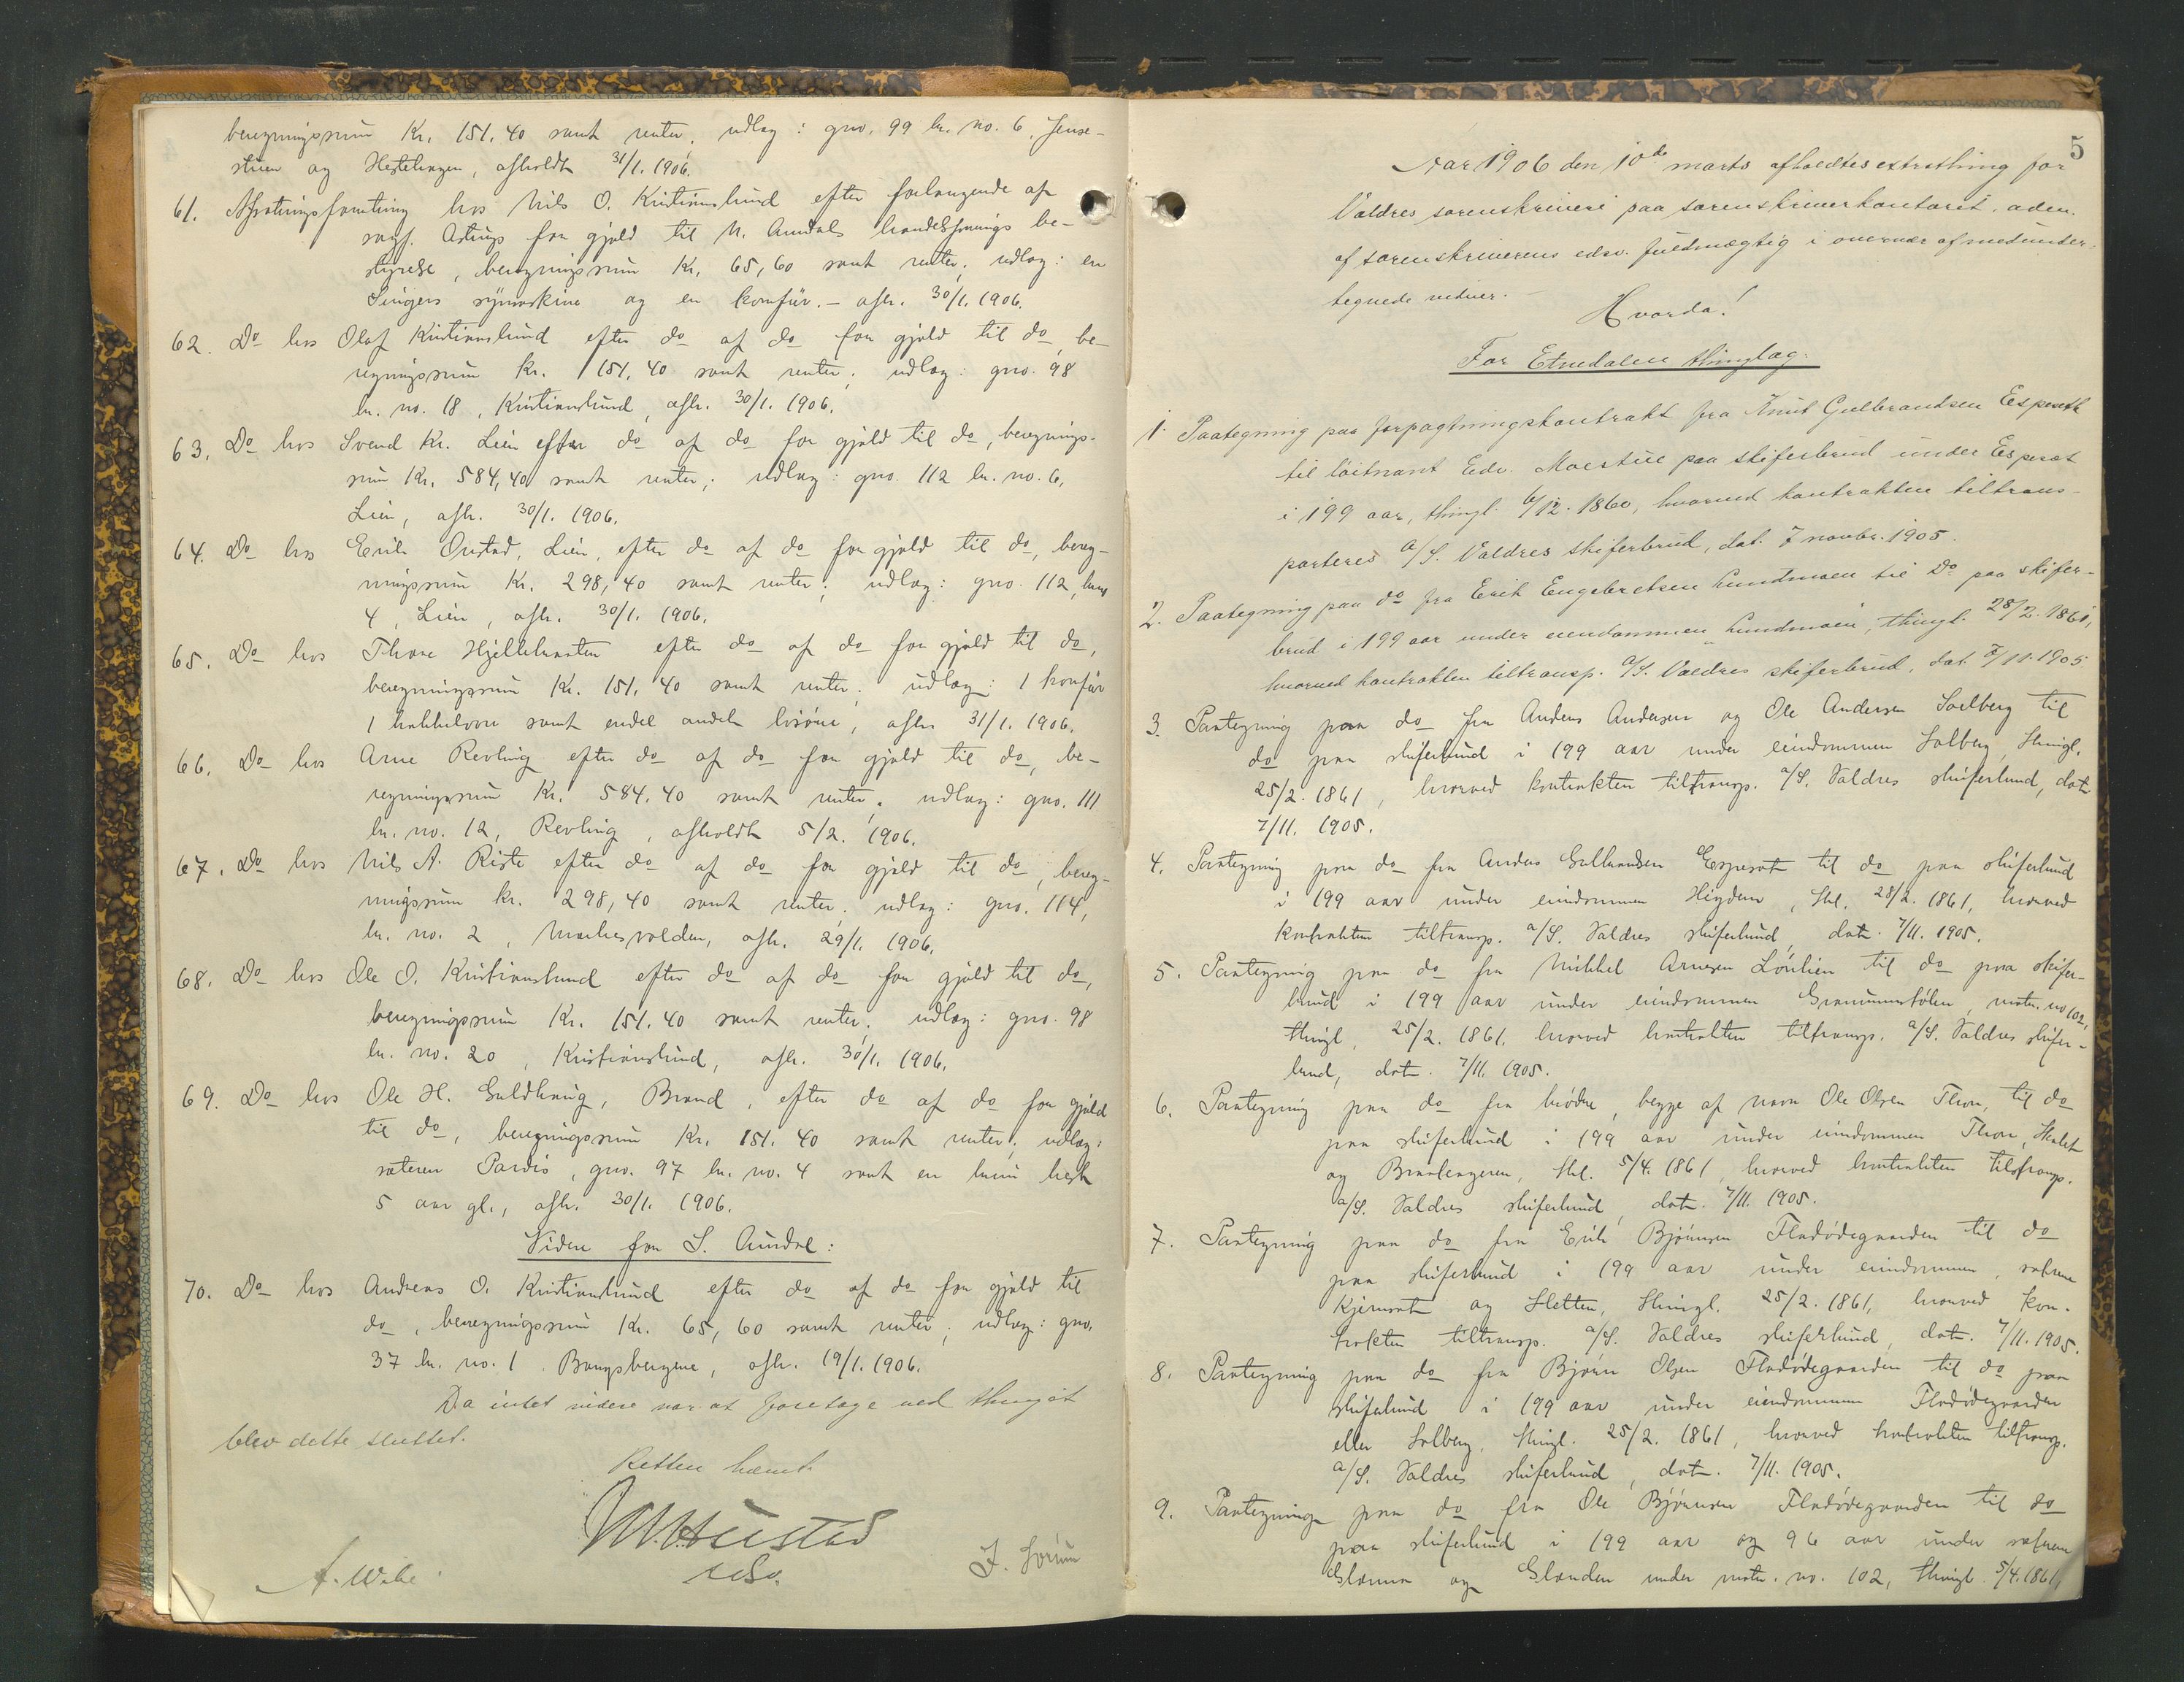 beregningssum Kr. 151.40 samt renter, udlæg: gno. 99 br. no. 6, Jense-
stuen og Hestehagen, afholdt 31/1. 1906.
61. Afsætningsforretning hos Nils O. Kristianslund efter forlangende af
sagf. Astrup for gjæld til N. Aurdals handelsforenings be-
styrelse, beregningssum Kr. 65,60 samt renter, udlæg: en
Singers symaskine og en komfür. - afh. 30/1. 1906.
62. Do hos Olaf Kristianslund efter do af do for gjæld til do, be-
regningssum Kr. 151.40 samt renter; udlæg: gno. 98
br. no. 18, Kristianslund, afh. 30/1. 1906.
63. Do hos Svend Kr. Lien efter do af do for gjæld til do, beregnings-
sum Kr. 584,40 samt renter; udlæg: gno. 112 br. no. 6,
Lien, afh. 30/1. 1906.
64. Do hos Erik Lien, efter do af do for gjæld til do, bereg-
ningssum Kr. 298,40 samt renter; udlæg: gno. 112, brno
4, Lien, afh. 30/1. 1906.
65. Do hos Thone efter do af do for gjæld til do,
beregningssum Kr. 151.40 samt renter; udlæg: 1 komfür
1 kakkelovn samt endel andet løsøre, afh. 31/1. 1906.
66. Do hos Arne Revling efter do af do for gjæld til do, be-
regningssum Kr. 584.40 samt renter, udlæg: gno. 111
br. no. 12, Revling, afholdt 5/2. 1906.
67. Do hos Nils A. Riste efter do af do for gjæld til do, bereg-
ningssum kr. 298,40 samt renter. udlæg: gno. 114,
br. no. 2, afh. 29/1. 1906.
68. Do hos Ole O. Kristianslund efter do af do for gjæld til do,
beregningssum Kr. 151.40 samt renter; udlæg: gno. 98
br. no. 20, Kristianslund, afh. 30/1. 1906.
69. Do hos Ole H. Brand, efter do af do for gjæld
til do, beregningssum Kr. 151.40 samt renter; udlæg:
sæteren Pardis, gno. 97 br. no. 4 samt en brun hest
5 aar gl., afh. 30/1. 1906.
Videre for S. Aurdal:
70. Do hos Andreas O. Kristianslund efter do af do for gjæld til
do, beregningssum Kr. 65,60 samt renter; udlæg: gno.
37 br. no. 1. afh. 19/1. 1906.
Da intet videre var at foretage ved thinget
blev dette sluttet.
Retten hævet.
Hustad
A. Wibe
5
Aar 1906 den 10de marts afholdtes extrathing for
Valdres sorenskriveri paa sorenskriverkontoret, adm.
af sorenskriverens edsv. fuldmægtig i overvær af medunder-
tegnede vidner. -
Hvorda!
For Etnedalen thinglag.
1. Paategning paa forpagtningskontrakt fra Knut Gulbrandsen Espeseth
til løitnant Edv. Moestue paa skiferbrud under Espeset
i 199 aar, thingl. 6/12. 1860, hvorved kontrakten tiltrans-
porteres a/S. Valdres skiferbrud, dat. 7 novbr. 1905.
2. Paategning paa do fra Erik Engebretsen Lundmoen til Do paa skifer-
brud i 199 aar under eiendommen Lundmoen, thingl. 28/2. 1861,
hvorved kontrakten tiltransp. a/S. Valdres skiferbrud, dat. 7/11. 1905
3. Paategning paa do fra Anders Andersen og Ole Andersen Soelberg til
do paa skiferbrud i 199 aar under eiendommen Solberg, thingl.
25/2. 1861, hvorved kontrakten tiltransp. a/S. Valdres skiferbrud, dat.
7/11. 1905.
4. Paategning paa do fra Anders Gulbrandsen Espeset til do paa skiferbrud
i 199 aar under eiendommen Høgden, thl. 28/2. 1861, hvorved
kontrakten tiltransp. a/S. Valdres skiferbrud, dat. 7/11. 1905.
5. Paategning paa do fra Mikkel Arnesen Lønlien til do paa skifer-
brud i 199 aar under eiendommen matr. no 102,
thingl. 25/2. 1861, hvorved kontrakten tiltransp. a/S. Valdres skifer-
brud, dat. 7/11. 1905.
6. Paategning paa do fra brødre, begge af navn Ole Olsen Thon, til do
paa skiferbrud i 199 aar under eiendommen Thon,
og thl. 5/4. 1861, hvorved kontrakten tiltransp.
a/S. Valdres skiferbrud, dat. 7/11. 1905.
7. Paategning paa do fra Erik Bjørnsen Fladødegaarden til do
paa skiferbrud i 199 aar under eiendommen, sætrene
og Sletten, thingl. 25/2. 1861, hvorved kon-
trakten tiltransp. a/S. Valdres skiferbrud, dat. 7/11. 1905.
8. Paategning paa do fra Bjørn Olsen Fladødegaarden til do paa
skiferbrud i 199 aar under eiendommen Fladødegaarden
eller Solberg, thingl. 25/2. 1861, hvorved kontrakten tiltransp.
a/S. Valdres skiferbrud, dat. 7/11. 1905.
9. Paategning paa do fra Ole Bjørnsen Fladødegaarden til do
paa skiferbrud i 199 aar og 96 aar under sætrene
og under matr. no. 102, thingl. 5/4. 1861,